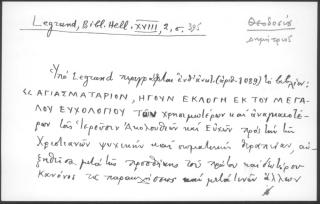 Legrand, Bibl. Hell. XVIII, 2, σ. 395
Θεοδοσίου
Δημήτριος
Ὑπὸ Legrand περιγράφεται ἐνθ' ἀνωτ. (ἀριθ. 1089) τὸ βιβλίον:
"ΑΓΙΑΣΜΑΤΑΡΙΟΝ, ΗΓΟΥΝ ΕΚΛΟΓΗ ΕΚ ΤΟΥ ΜΕΓΑ-
ΛΟΥ ΕΥΧΟΛΟΓΙΟΥ ΤΩΝ χρησιμωτέρων καὶ ἀναγκαιοτέ-
ρων τοῖς Ἱερεῦσιν Ἀκολουθιῶν καὶ Εὐχῶν πρὸς τὴν τῶν
Χριστιανῶν ψυχικὴν καὶ σωματικὴν θεραπείαν, αὐ-
ξηθεῖσα μετὰ τῆς προσθήκης τοῦ πρώτου καὶ δευτέρου
Κανόνος τῆς παρακλήσεως καὶ μετὰ τινῶν ἄλλων